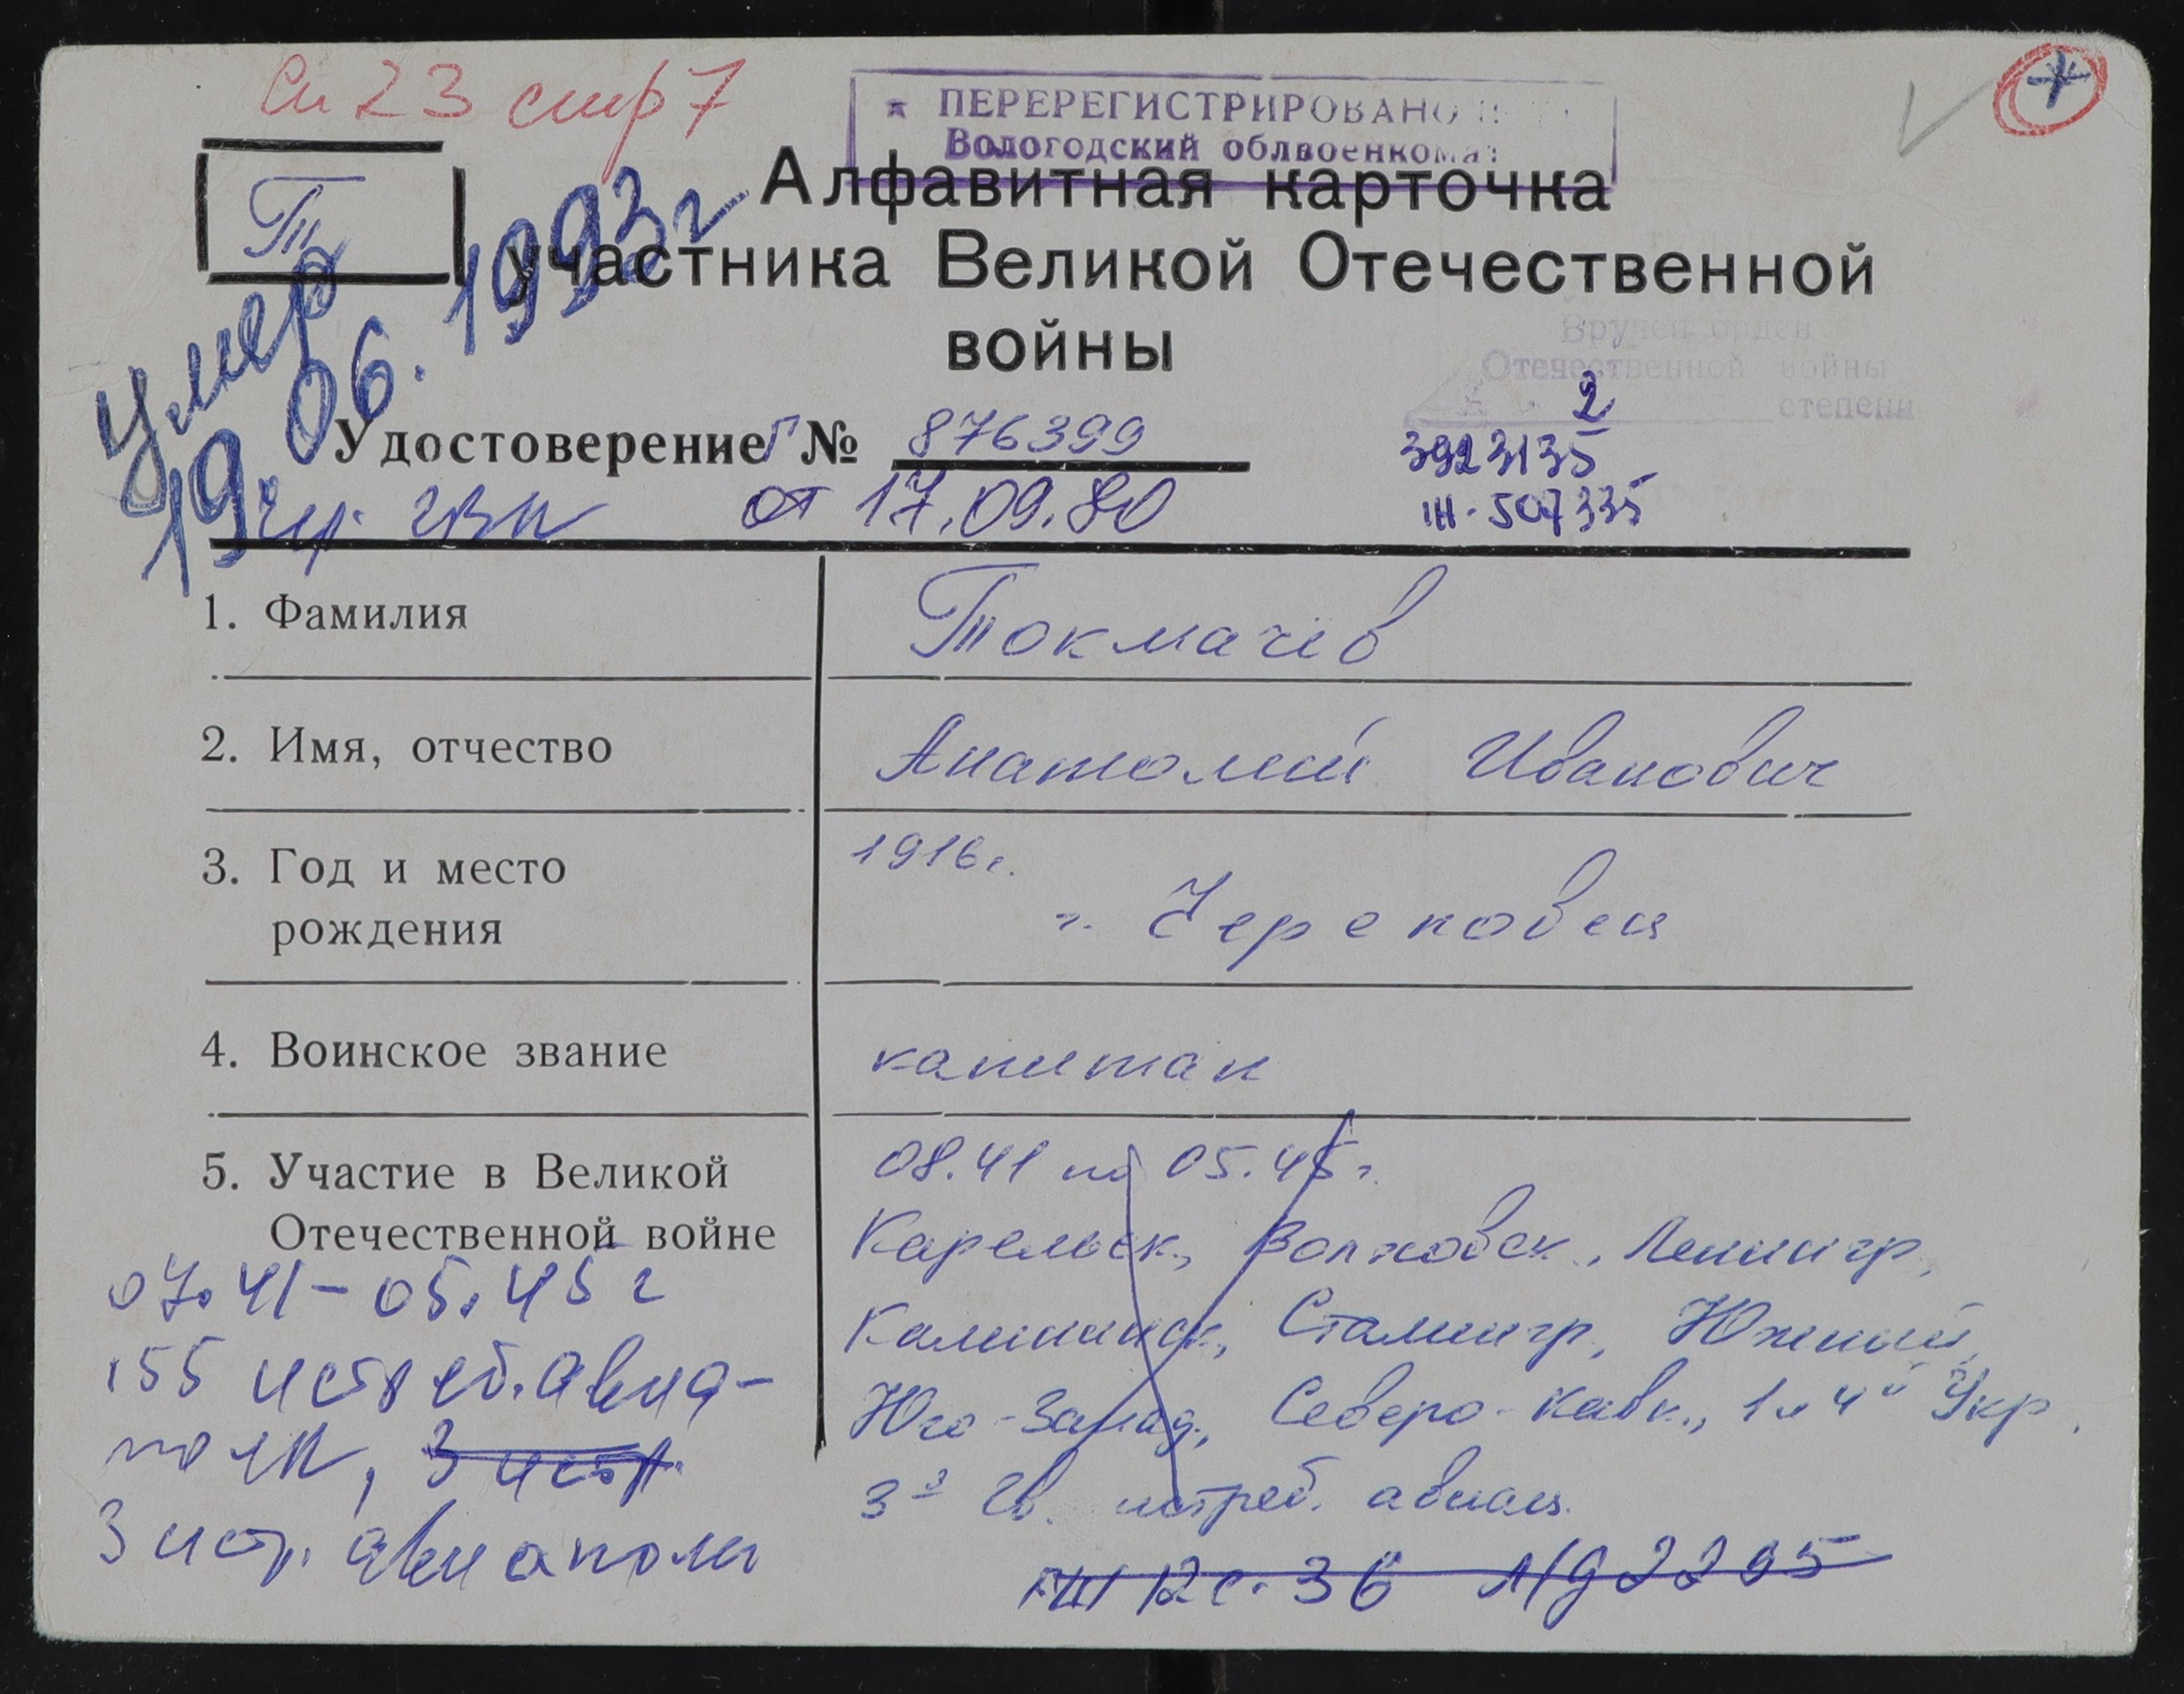 Сп 23 стр 7
ПЕРЕРЕГИСТРИРОВАНО
Вологодский облвоенкомат
Т
Умер
19.06.1993г
Алфавитная карточка
участника Великой Отечественной
войны
Вручен орден
Отечественной войны
степени
2
Удостоверение Г № 876399
3923135
чер. гвк от 17.09.80
III-507335
1. Фамилия
Токмачёв
2. Имя, отчество
Анатолий Иванович
3. Год и место
рождения
1916г.
г. Череповец
4. Воинское звание
капитан
5. Участие в Великой
Отечественной войне
08.41 по 05.45г.
Карельск., Волховск., Ленингр.,
Калининск., Сталингр., Южный,
Юго-Запад., Северо-Кавк., 1 и 4й Укр.
3я Гв. истреб. авиац.
07.41-05.45г
155 истреб. авиа-
полк, 3 истр.
3 истр. авиаполк
12 с. 36